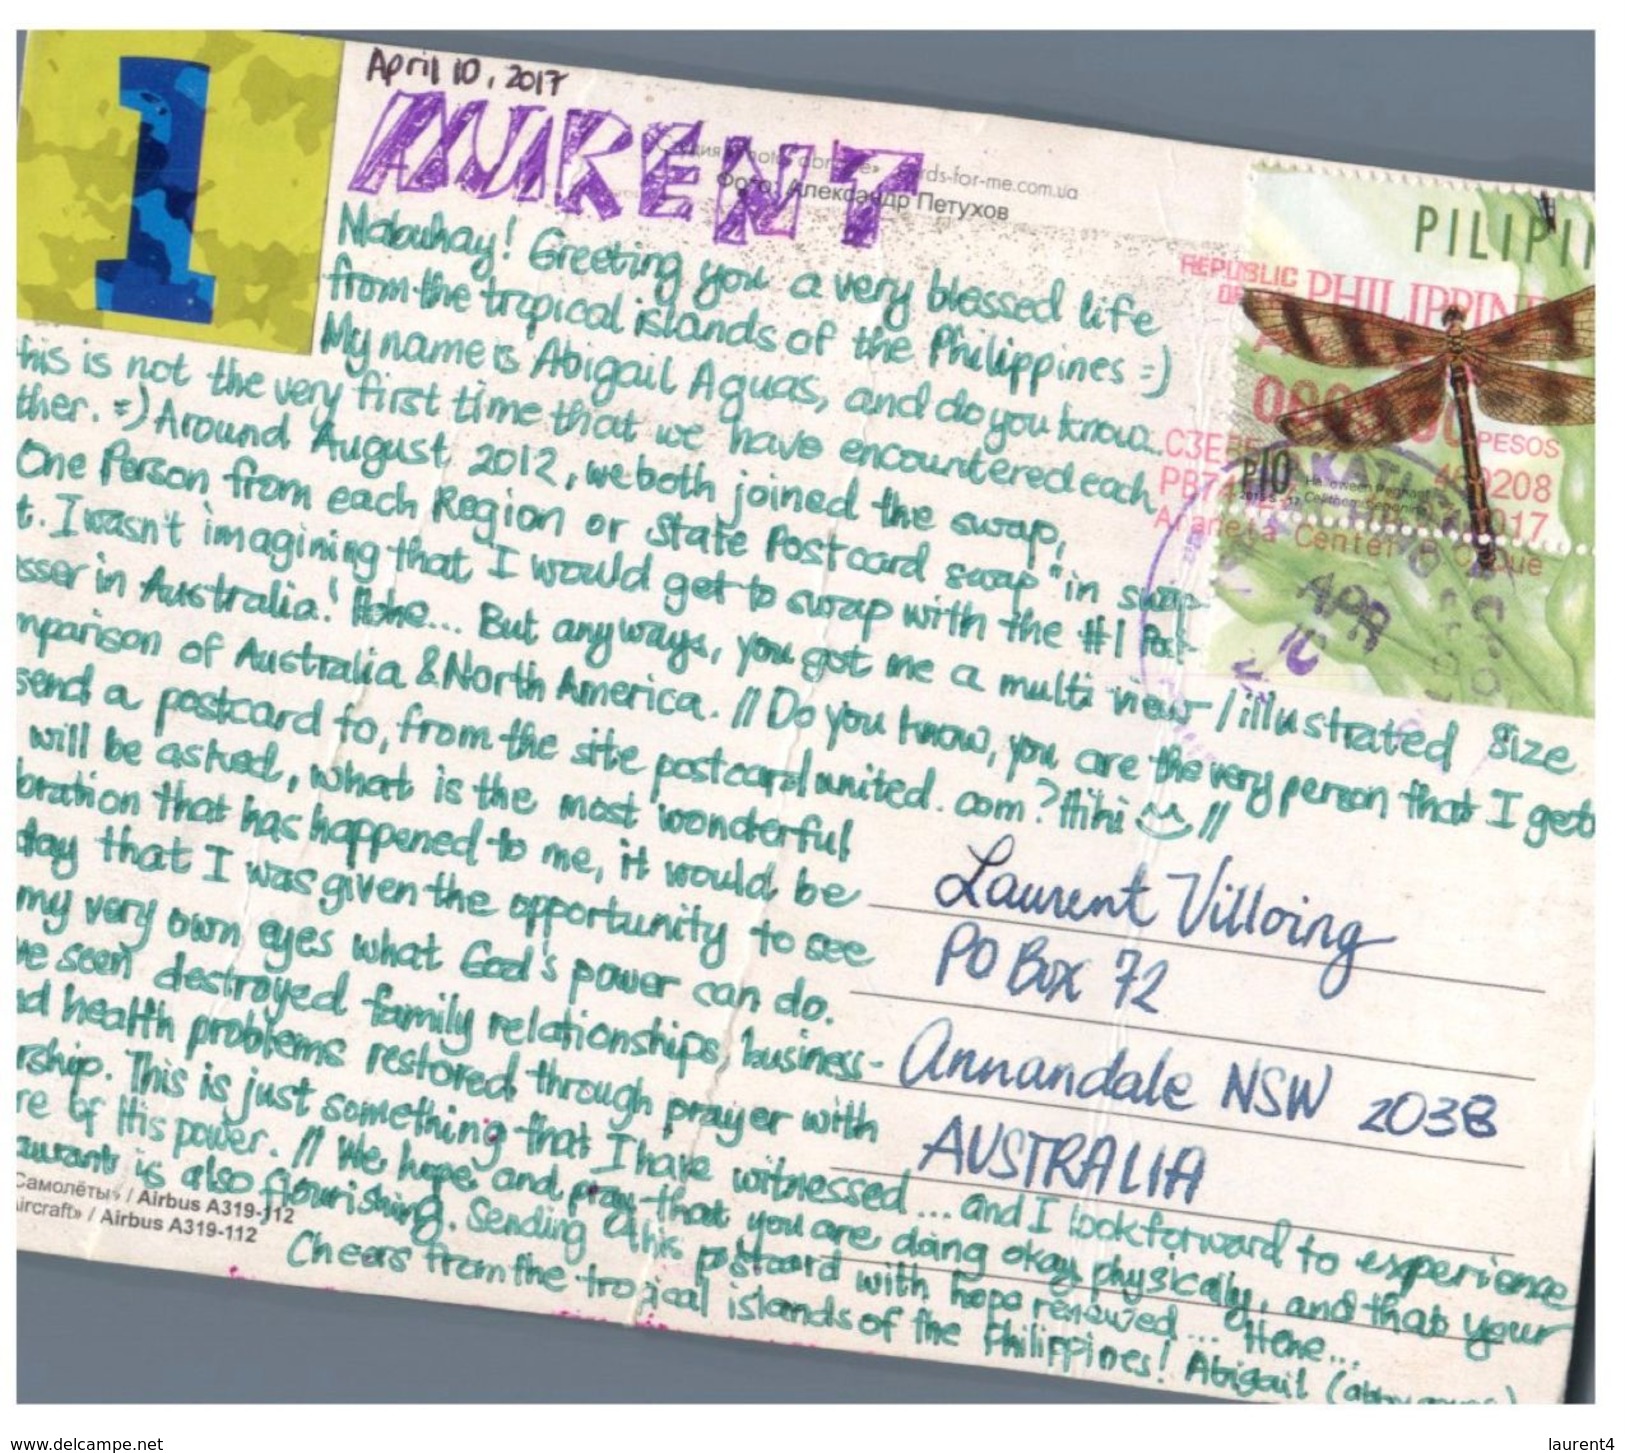 1
April 10, 2017
LAURENT
cards-for-me.com.ua
Фото: Александр Петухов
Mabuhay! Greeting you a very blessed life
from the tropical islands of the Philippines =)
My name is Abigail Aguas, and do you know...
this is not the very first time that we have encountered each
ther. =) Around August 2012, we both joined the swap,
One Person from each Region or State Postcard swap" in swap-
t. I wasn't imagining that I would get to swap with the #1 Post-
sser in Australia! Hehe... But anyways, you got me a multi view/illustrated size
mparison of Australia & North America. // Do you know, you are the very person that I get to
send a postcard to, from the site postcardunited.com? Hihi //
will be asked, what is the most wonderful
bration that has happened to me, it would be
day that I was given the opportunity to see
my very own eyes what God's power can do.
ve seen destroyed family relationships, business-
nd health problems restored through prayer with
rship. This is just something that I have witnessed... and I look forward to experience
re of His power. // We hope and pray that you are doing okay physically, and that your
is also flourishing. Sending this postcard with hope renewed... Hehe...
Cheers from the tropical islands of the Philippines! Abigail
Laurent Villoing
PO Box 72
Annandale NSW 2038
AUSTRALIA
Самолёты» / Airbus A319-112
ircraft» / Airbus A319-112
PILIPIN
REPUBLIC OF PHILIPPINE
PESOS
P10
Araneta Center
APR
10
www.delcampe.net
laurent4